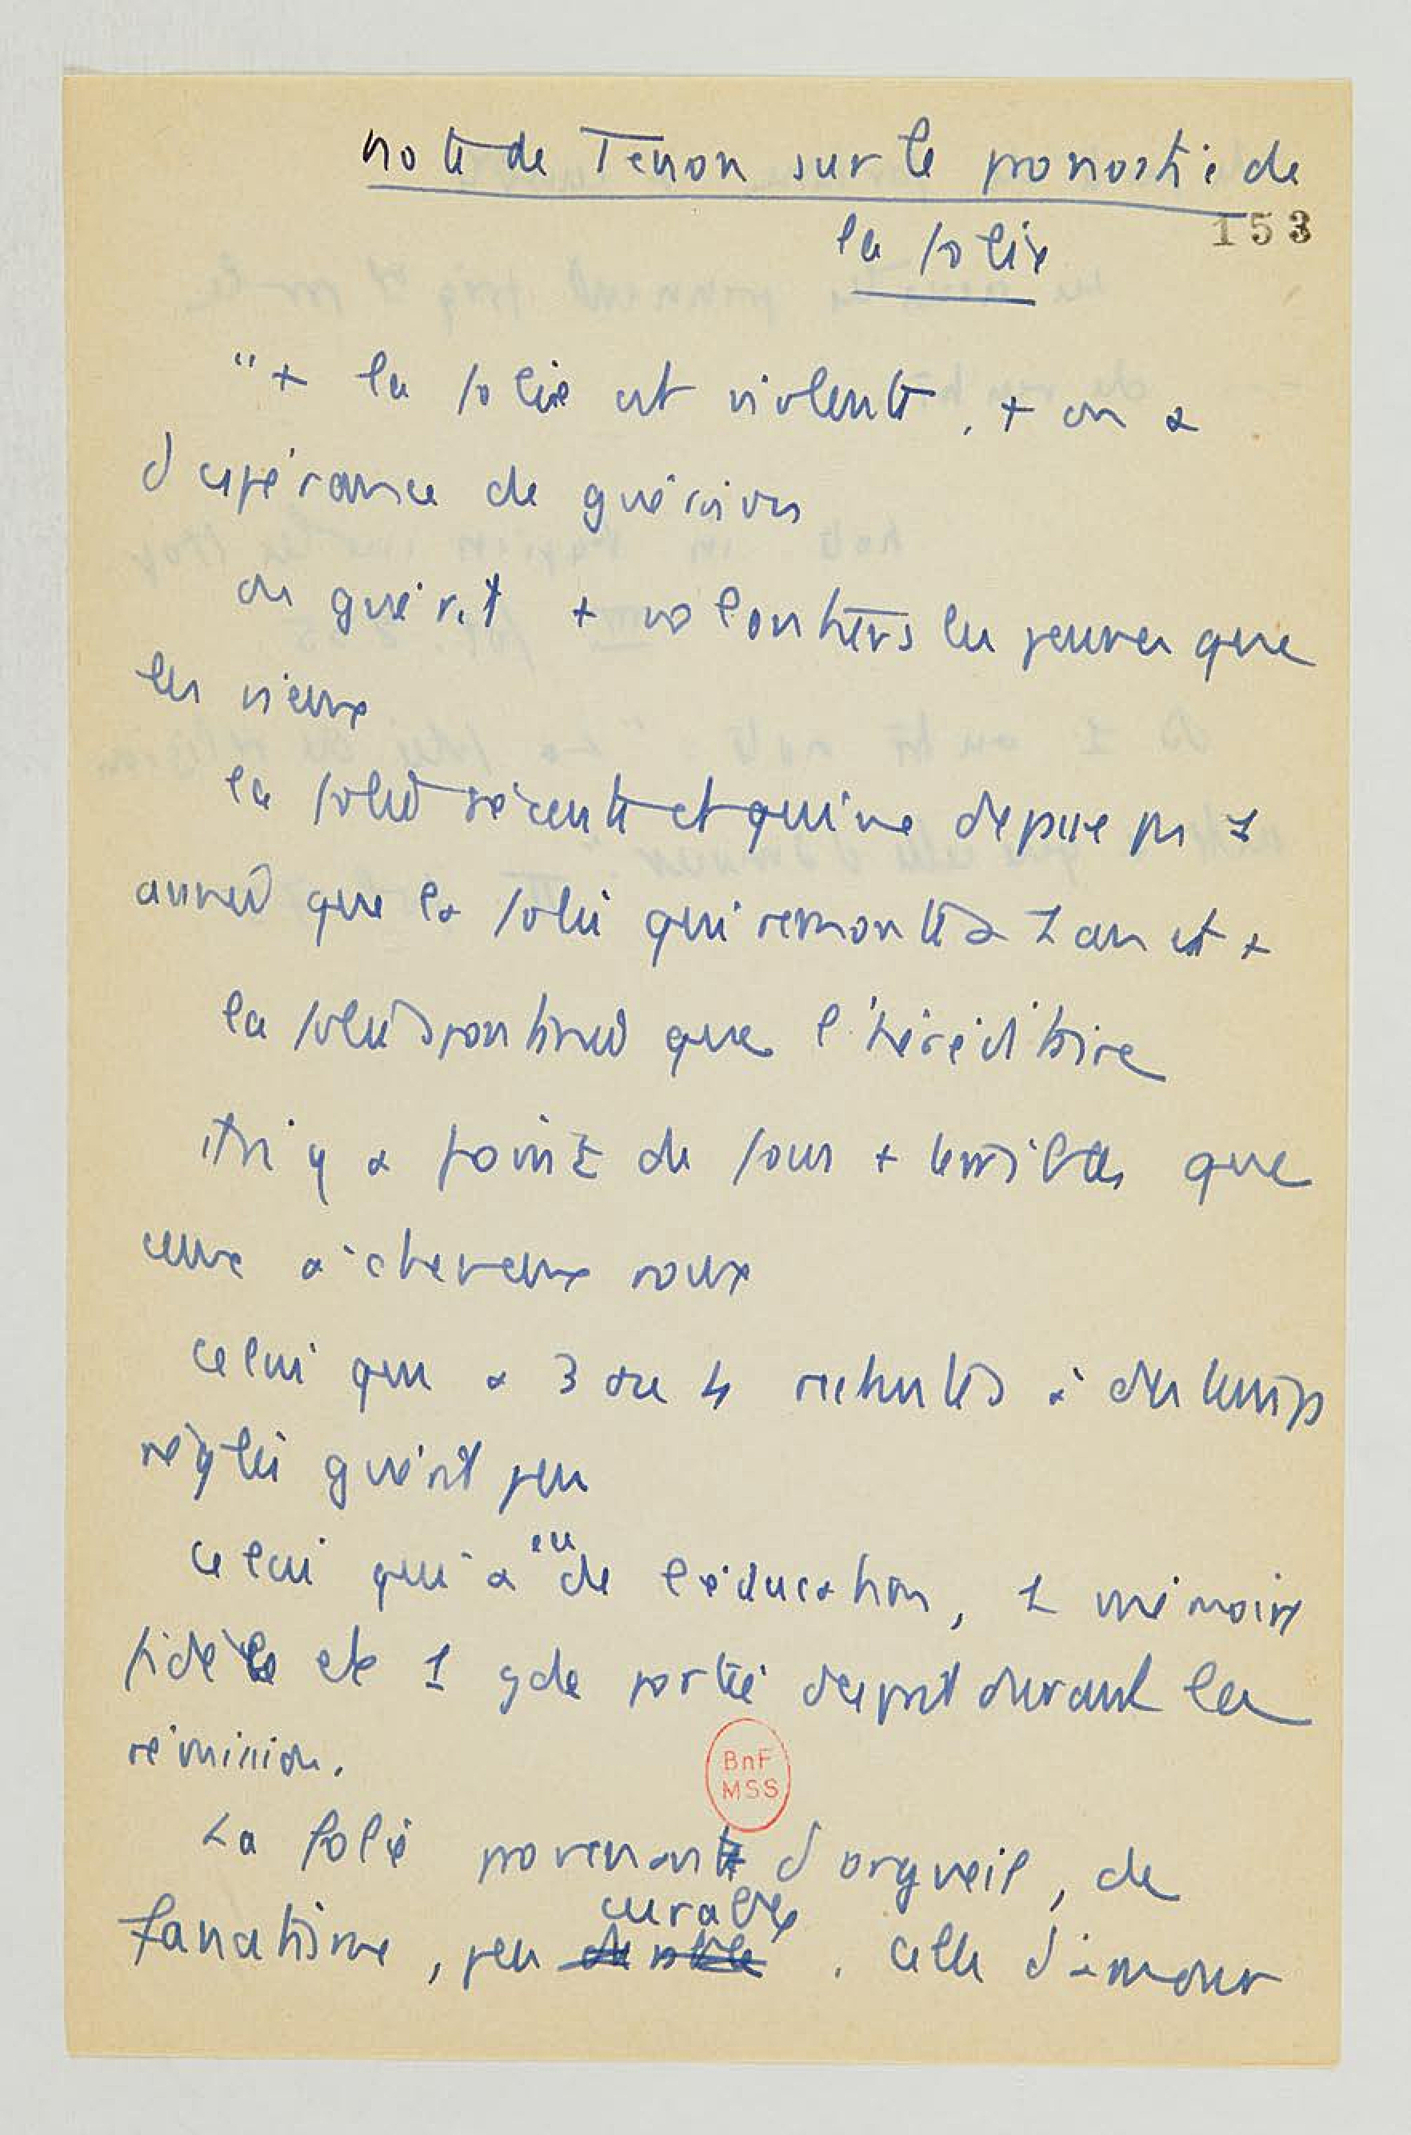 note de Tenon sur le pronostic de
153
la folie
"+ la folie est violente, + on a
d'espérance de guérison
on guérit + volontiers les jeunes que
les vieux
la folie récente et qui ne dépasse pas 1
année que la folie qui remonte à 1 an et +
la folie spontanée que l'héréditaire
il n'y a point de fous + terribles que
ceux à cheveux roux
celui qui a 3 ou 4 rechutes à des temps
réglés guérit peu
celui qui a eu de l'éducation, 1 mémoire
fidèle et 1 gde partie d'esprit durant la
rémission.
BnF
MSS
La folie provenant d'orgueil, de
curable
fanatisme, peu . celle d'amour